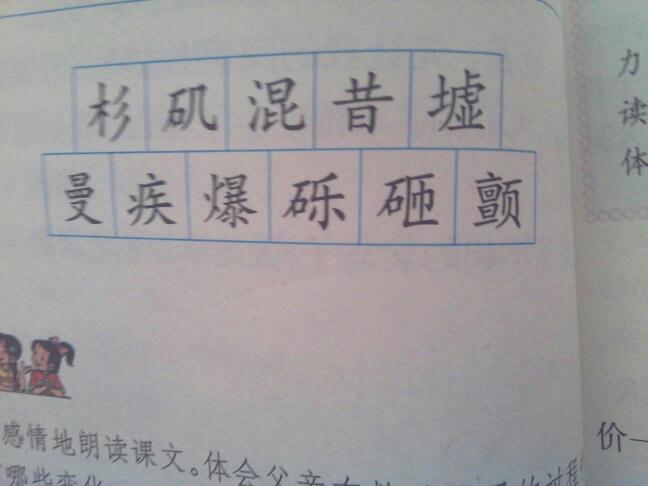 杉矶混昔墟
曼疾爆砾砸颤
感情地朗读课文。体会父亲在
哪些变化
力
读
体
价